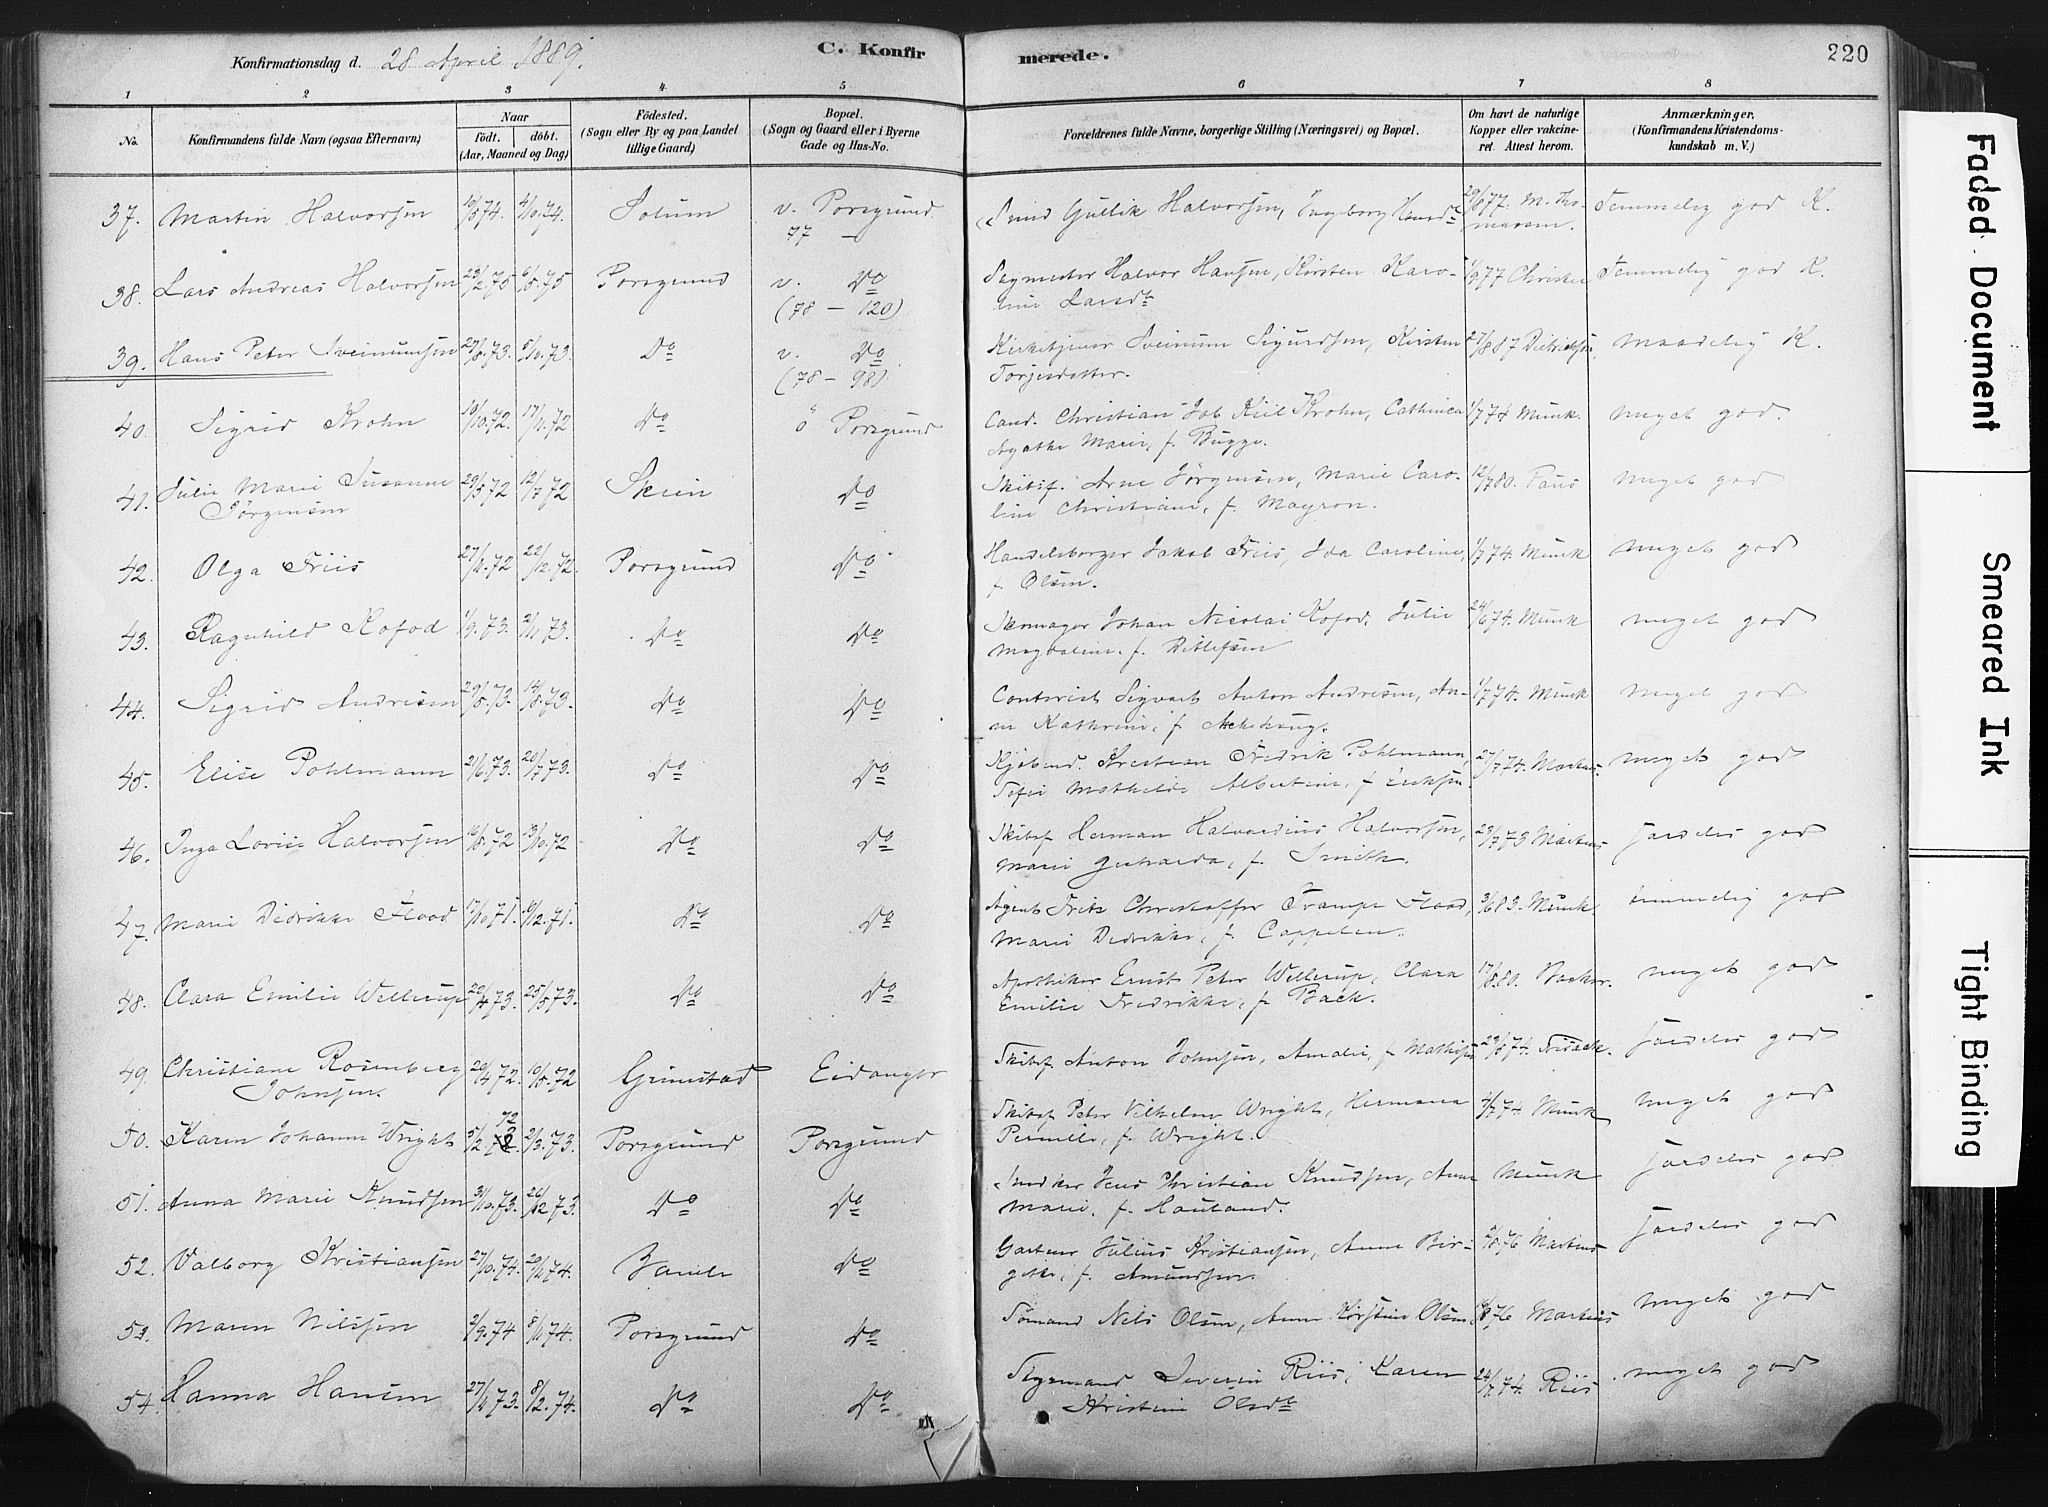 Konfirmationsdag d. 28 April 1889. C. Konfirmerede. 220
1 2 3 4 5 6 7 8
No. Konfirmandens fulde Navn (ogsaa Efternavn) Naar født. døbt. (Aar, Maaned og Dag) Fødested. (Sogn eller By og paa Landet tillige Gaard.) Bopæl. (Sogn og Gaard eller i Byerne Gade og Hus-No. Forældrenes fulde Navne, borgerlige Stilling (Næringsvei) og Bopæl. Om havt de naturlige Kopper eller vakcineret. Attest herom. Anmærkninger, (Konfirmandens Kristendomskundskab m. V.)
37. Martin Halvorsen 4/10.74. Solum v. Porsgrund 77 — Gullik Halvorsen, Ingeborg 29/8 77. M. Thomassen. Temmelig god K.
38. Lars Andreas Halvorsen 23/2.75 6/5.75 Porsgrund v. Do (78 — 120) Sagmester Halvor Hansen, Kirsten Karoline Larsdtr 1/9 77 Temmelig god K.
39. Hans Peter Sveinunsen 5/10.73. Do v. Do (78 — 98) Kirketjener Sveinum Sigurdsen, Kirsten Torjesdatter. 27/8 87 Dietrichsen maadelig K.
40. Sigrid Krohn 17/11.72 Do ö Porsgrund Cand. Christian Job Kiil Krohn, Cathinca Agathe Marie, f. Bugge. 1/7 74 Munk. meget god.
41. Julie Marie Susanne Jörgensen 29/5 72 12/7 72 Skien Do Skibsf. Arne Jörgensen, Marie Caroline Christiane, f. Mayron. 12/7 80. Paus meget god
42. Olga Friis 27/11 72 22/12.72. Porsgrund Do Handelsborger Jakob Friis, Ida Caroline, f. Olsen. 1/7 74 Munk meget god
43. Ragnhild Kofod 1/9.73. 2/11 73. Do Do Skomager Johan Nicolai Kofod, Julie Magdalene, f. Ditlefsen 24/6 74. Munk meget god
44. Sigrid Andresen 29/5.73. 14/8.73. Do Do Contorist Sigvart Anton Andresen, Anne Kathrine, f. 1/7 74. Munk meget god
45. Elise Pohlmann 21/6.73. 20/7 73. Do Do Kjøbmd. Kristian Fredrik Pohlmann, Sofie Mathilde Albertine, f. Eriksen 27/7 74. Martens. meget god
46. Inga Lovise Halvorsen 16/8.72 13/10.72 Do Do Skibsf Herman Halvardius Halvorsen, Marie Gerharda, f. Smith. 23/7 73 Martens særdeles god
47. Marie Didrikke Flood 17/10 71. 10/12.71. Do Do Agent Fritz Christoffer Trampe Flood, Marie Didrikke, f. Cappelen. 3/6 83. Munk temmelig god
48. Clara Emilie Wellerup 20/4 73. 25/5 73. Do Do Apotheker Ernst Peter Wellerup, Clara Emilie Fredrikke, f. Back. 17/8.80. Backer. meget god
49. Christiane Rosenberg Johnsen. 20/4 72. 10/5.72 Grimstad Eidanger Skibsf Anton Johnsen, Amalie, f. Mathisen 29/5 74. særdeles god
50. Karen Johanne Wright 5/12.72 2/3.73. Porsgrund Porsgrund Skibsf Peter Vilhelm Wright, Hermana Pernille, f. Wright. 1/7 74. Munk meget god
51. Anna Marie Knudsen 31/10.73. 26/12 73. Do Do Snedker Jens Christian Knudsen, Anne Marie, f. Hauland. Munk særdeles god
52. Valborg Kristiansen 27/10.74. 29/11 74. Do Gartner Julius Kristiansen, Anne Birgitte, f. Amundsen. Martens særdeles god
53. Maren Nilssen 2/9.74 8/11 74. Porsgrund Do Sömand Nels Olsen, Anne Kirstine Olsen Martens meget god
54. Hanna Hansen 27/11 73. 8/2.74. Do Do Severin Riis, Karen Kristine Olsdtr 24/7 74. Riis meget god
Faded Document
Smeared Ink
Tight Binding